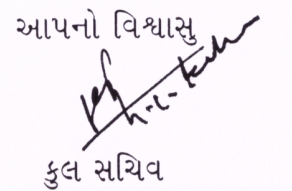 આપનો વિશ્વાસુ
કુલ સચિવ